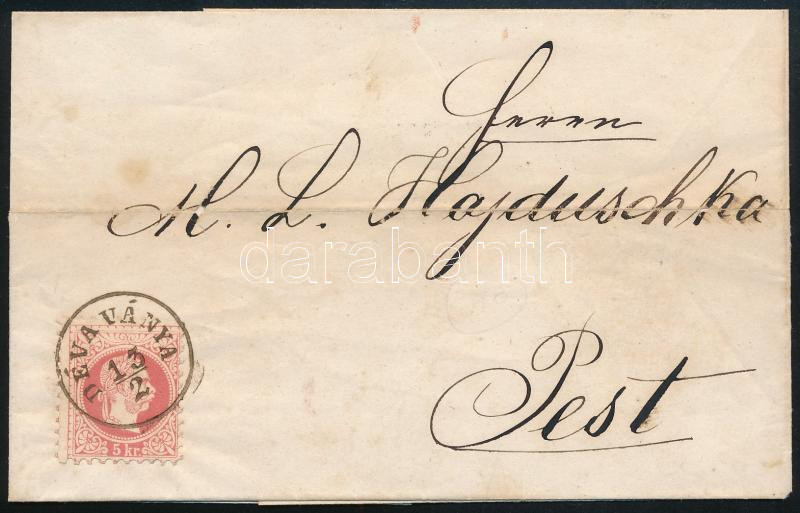 Herrn
M. L. Hajduschka
darabanth
Pest
DÉVAVÁNYA
13/2
5 kr.